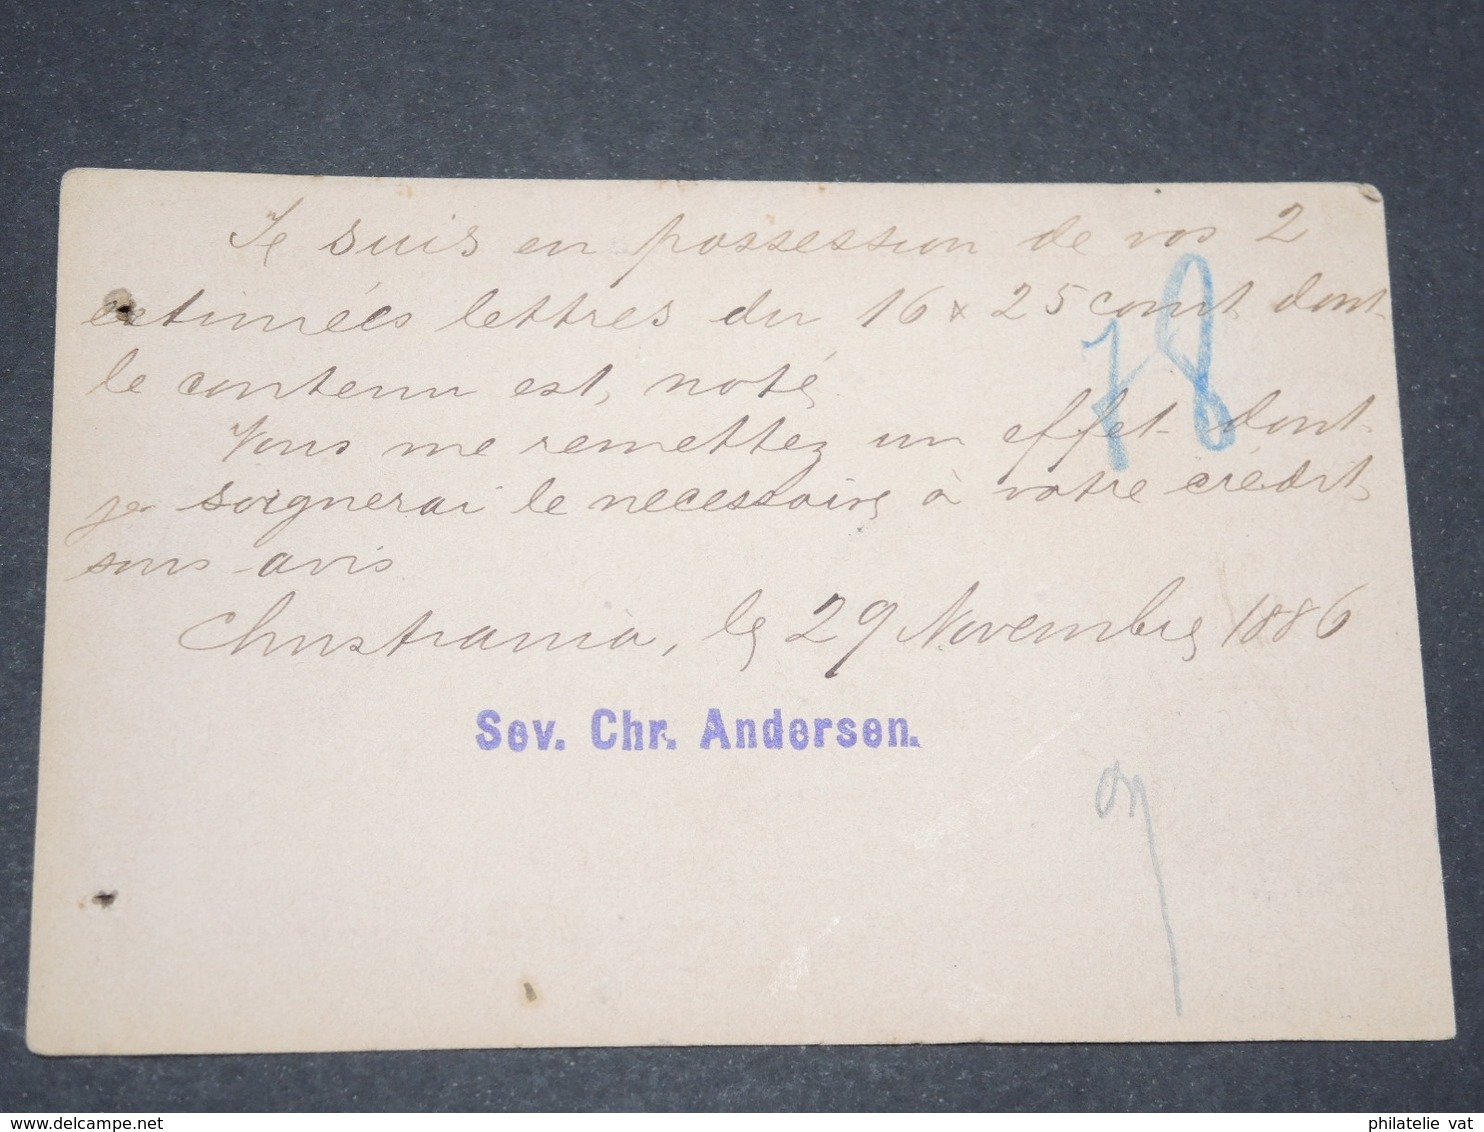 Je suis en possession de vos 2
estimées lettres du 16 & 25 cour̲t dont
le contenu est noté
Vous me remettez un effet dont
je soignerai le necessaire à votre crédit
sans avis
Christiania, le 29 Novembre 1886
Sev. Chr. Andersen.
78
philatelie vat
www.delcampe.net